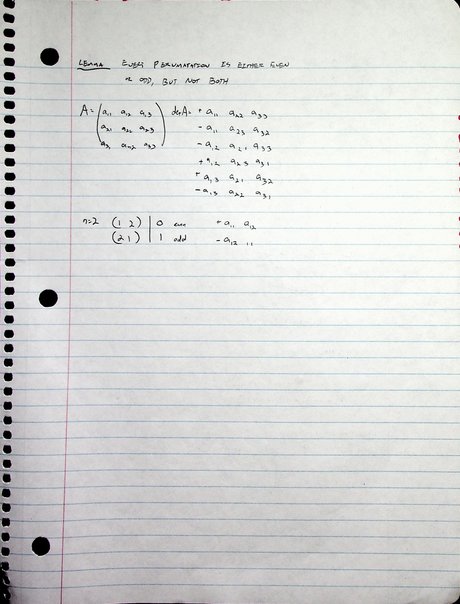 LEMMA EVERY PERUMATATION IS EITHER EVEN
OR ODD, BUT NOT BOTH
A = ( a11 a12 a13 ) det A = + a11 a22 a33
a21 a22 a23 - a11 a23 a32
a31 a32 a33 - a12 a21 a33
+ a12 a23 a31
+ a13 a21 a32
- a13 a22 a31
n=2 (1 2) | 0 even + a11 a12
(2 1) | 1 odd - a12 11